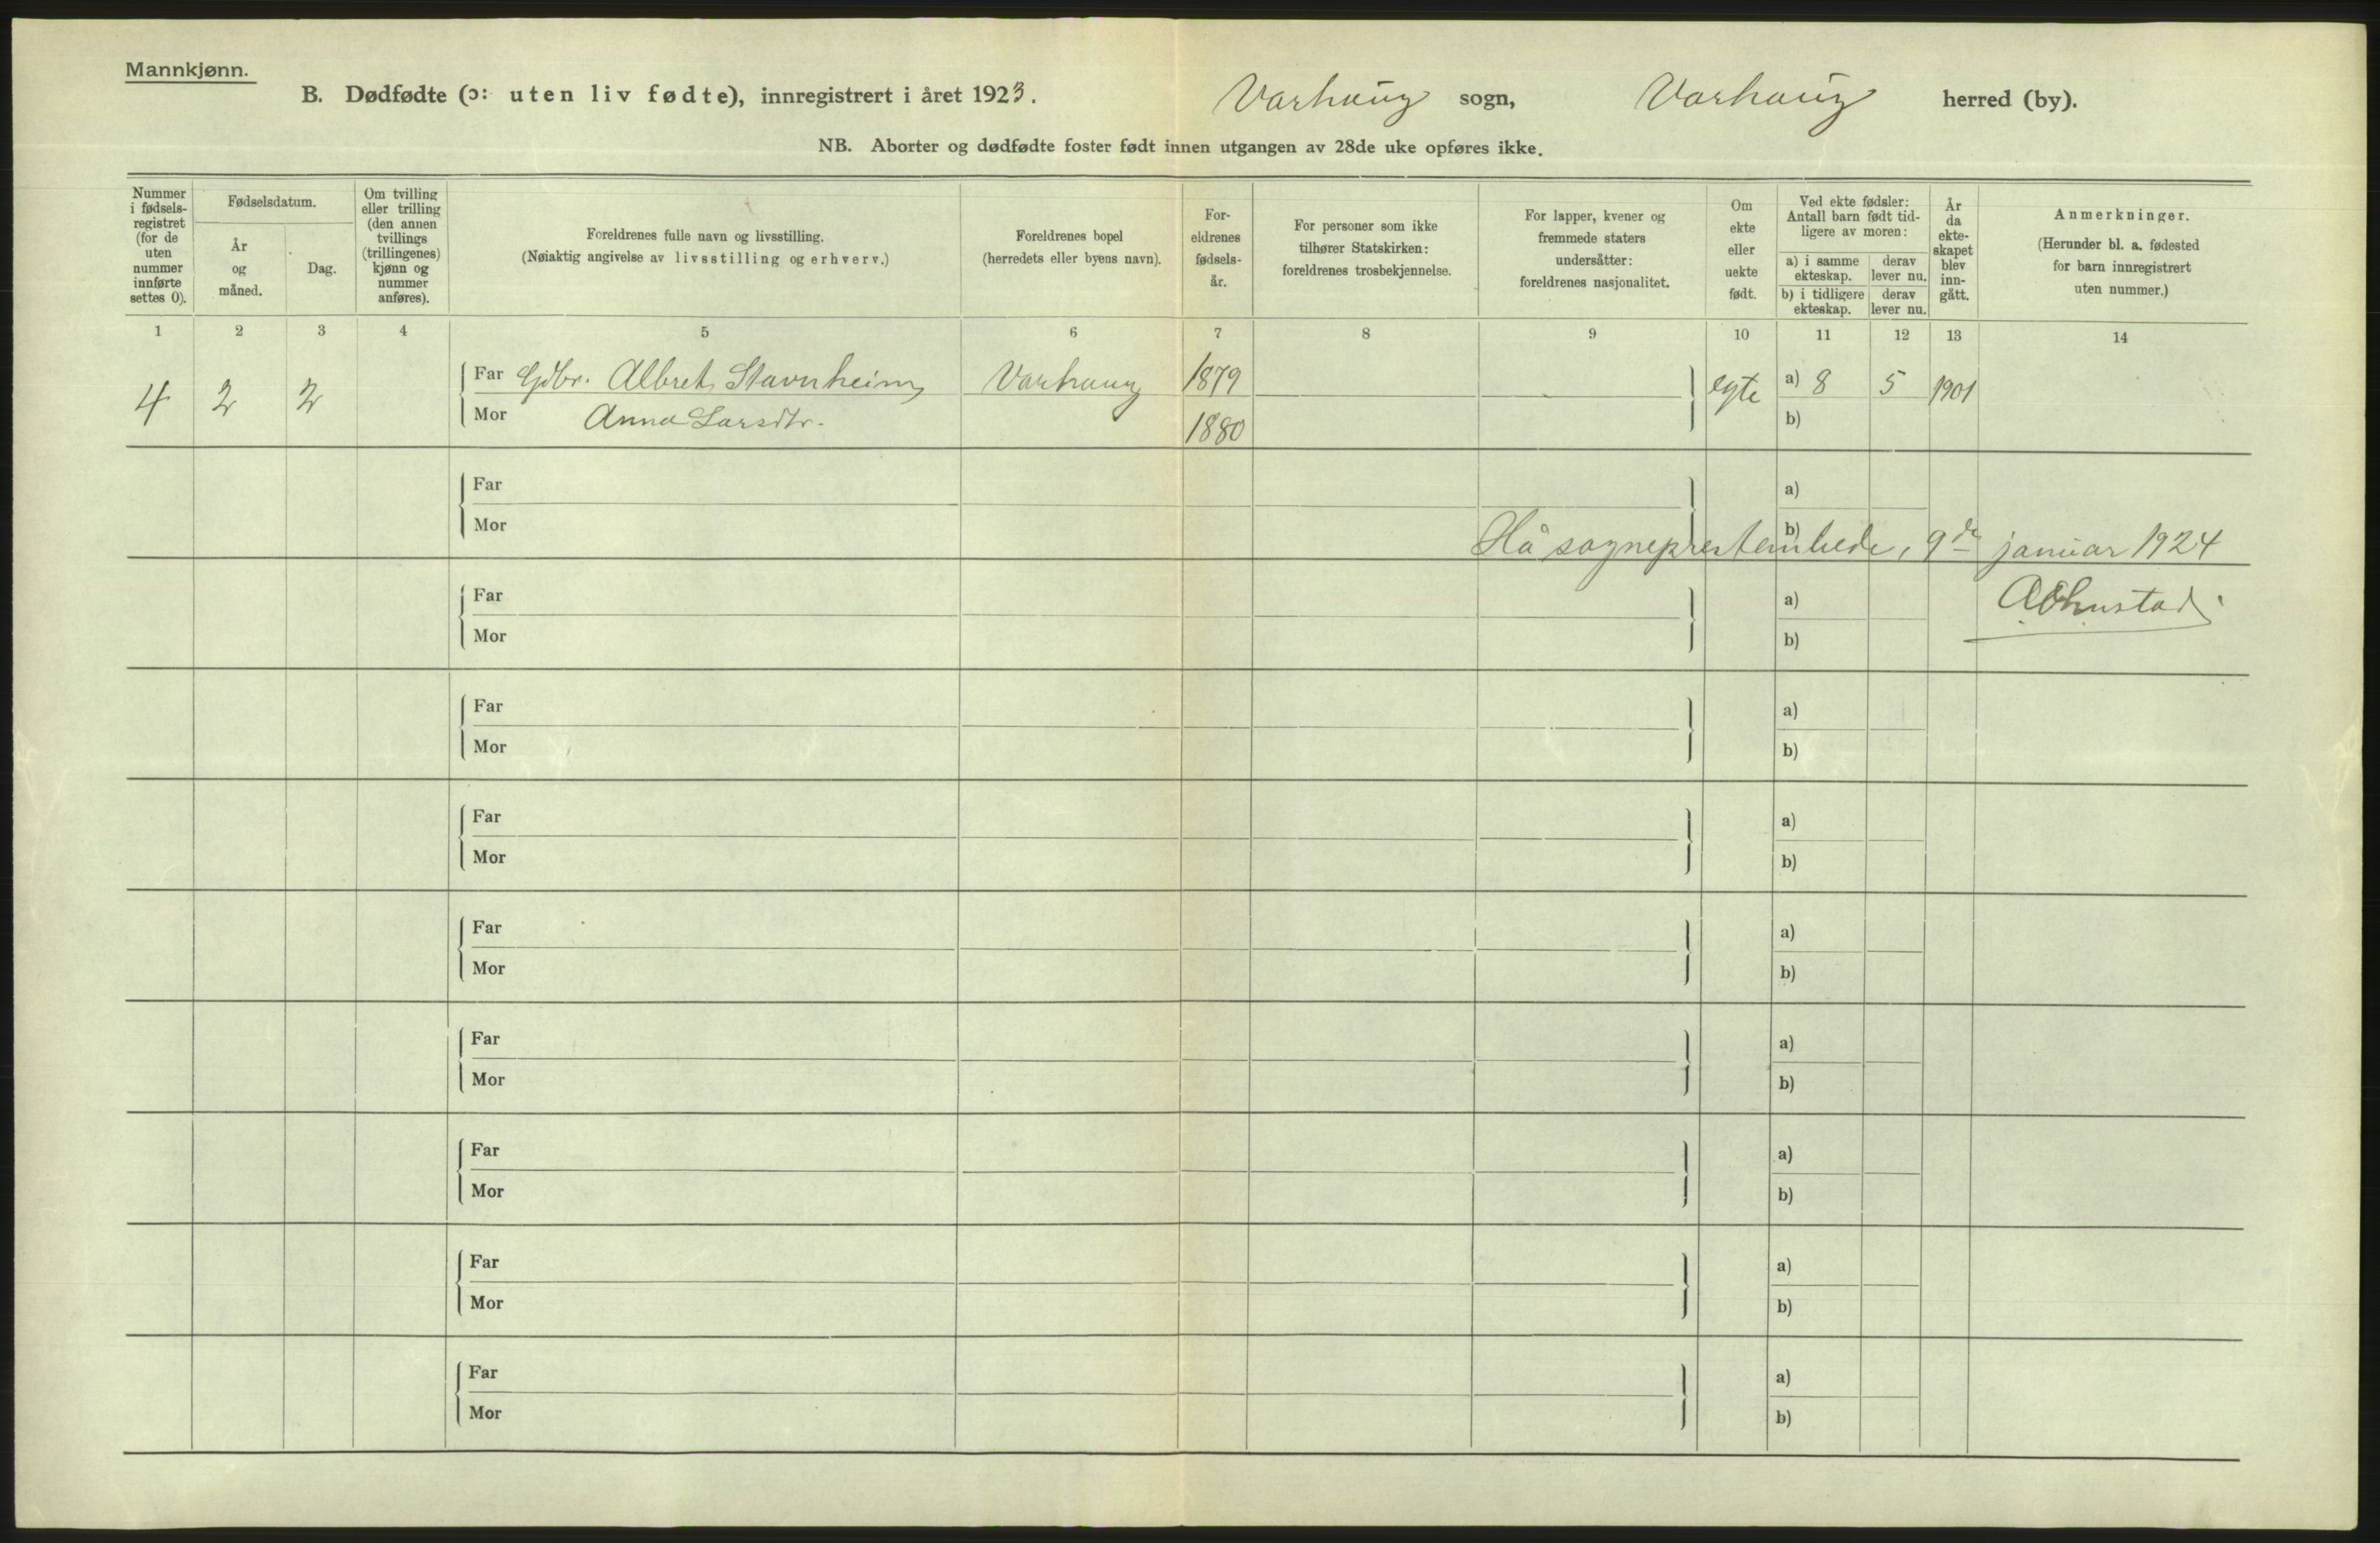 Mannkjønn.
B. Dødfødte (ɔ: uten liv fødte), innregistrert i året 1923. Varhaug sogn, Varhaug herred (by).
NB. Aborter og dødfødte foster født innen utgangen av 28de uke opføres ikke.
Nummer i fødsels-registret (for de uten nummer innførte settes 0).
Fødselsdatum.
År og måned.
Dag.
Om tvilling eller trilling (den annen tvillings (trillingenes) kjønn og nummer anføres).
Foreldrenes fulle navn og livsstilling.
(Nøiaktig angivelse av livsstilling og erhverv.)
Foreldrenes bopel
(herredets eller byens navn).
For-eldrenes fødsels-år.
For personer som ikke tilhører Statskirken: foreldrenes trosbekjennelse.
For lapper, kvener og fremmede staters undersåtter: foreldrenes nasjonalitet.
Om ekte eller uekte født.
Ved ekte fødsler: Antall barn født tid-ligere av moren:
a) i samme ekteskap.
derav lever nu.
b) i tidligere ekteskap.
derav lever nu.
År da ekte-skapet blev inn-gått.
Anmerkninger.
(Herunder bl. a. fødested for barn innregistrert uten nummer.)
1 2 3 4 5 6 7 8 9 10 11 12 13 14
4 2 2 Far Gdbr. Albret Stavnheim Varhaug 1879 egte a) 8 5 1901
Mor Anna Larsdtr. 1880 b)
Far a)
Mor b)
Hå sogneprestembede, 9de januar 1924
Far a)
Mor b)
Far a)
Mor b)
Far a)
Mor b)
Far a)
Mor b)
Far a)
Mor b)
Far a)
Mor b)
Far a)
Mor b)
Far a)
Mor b)